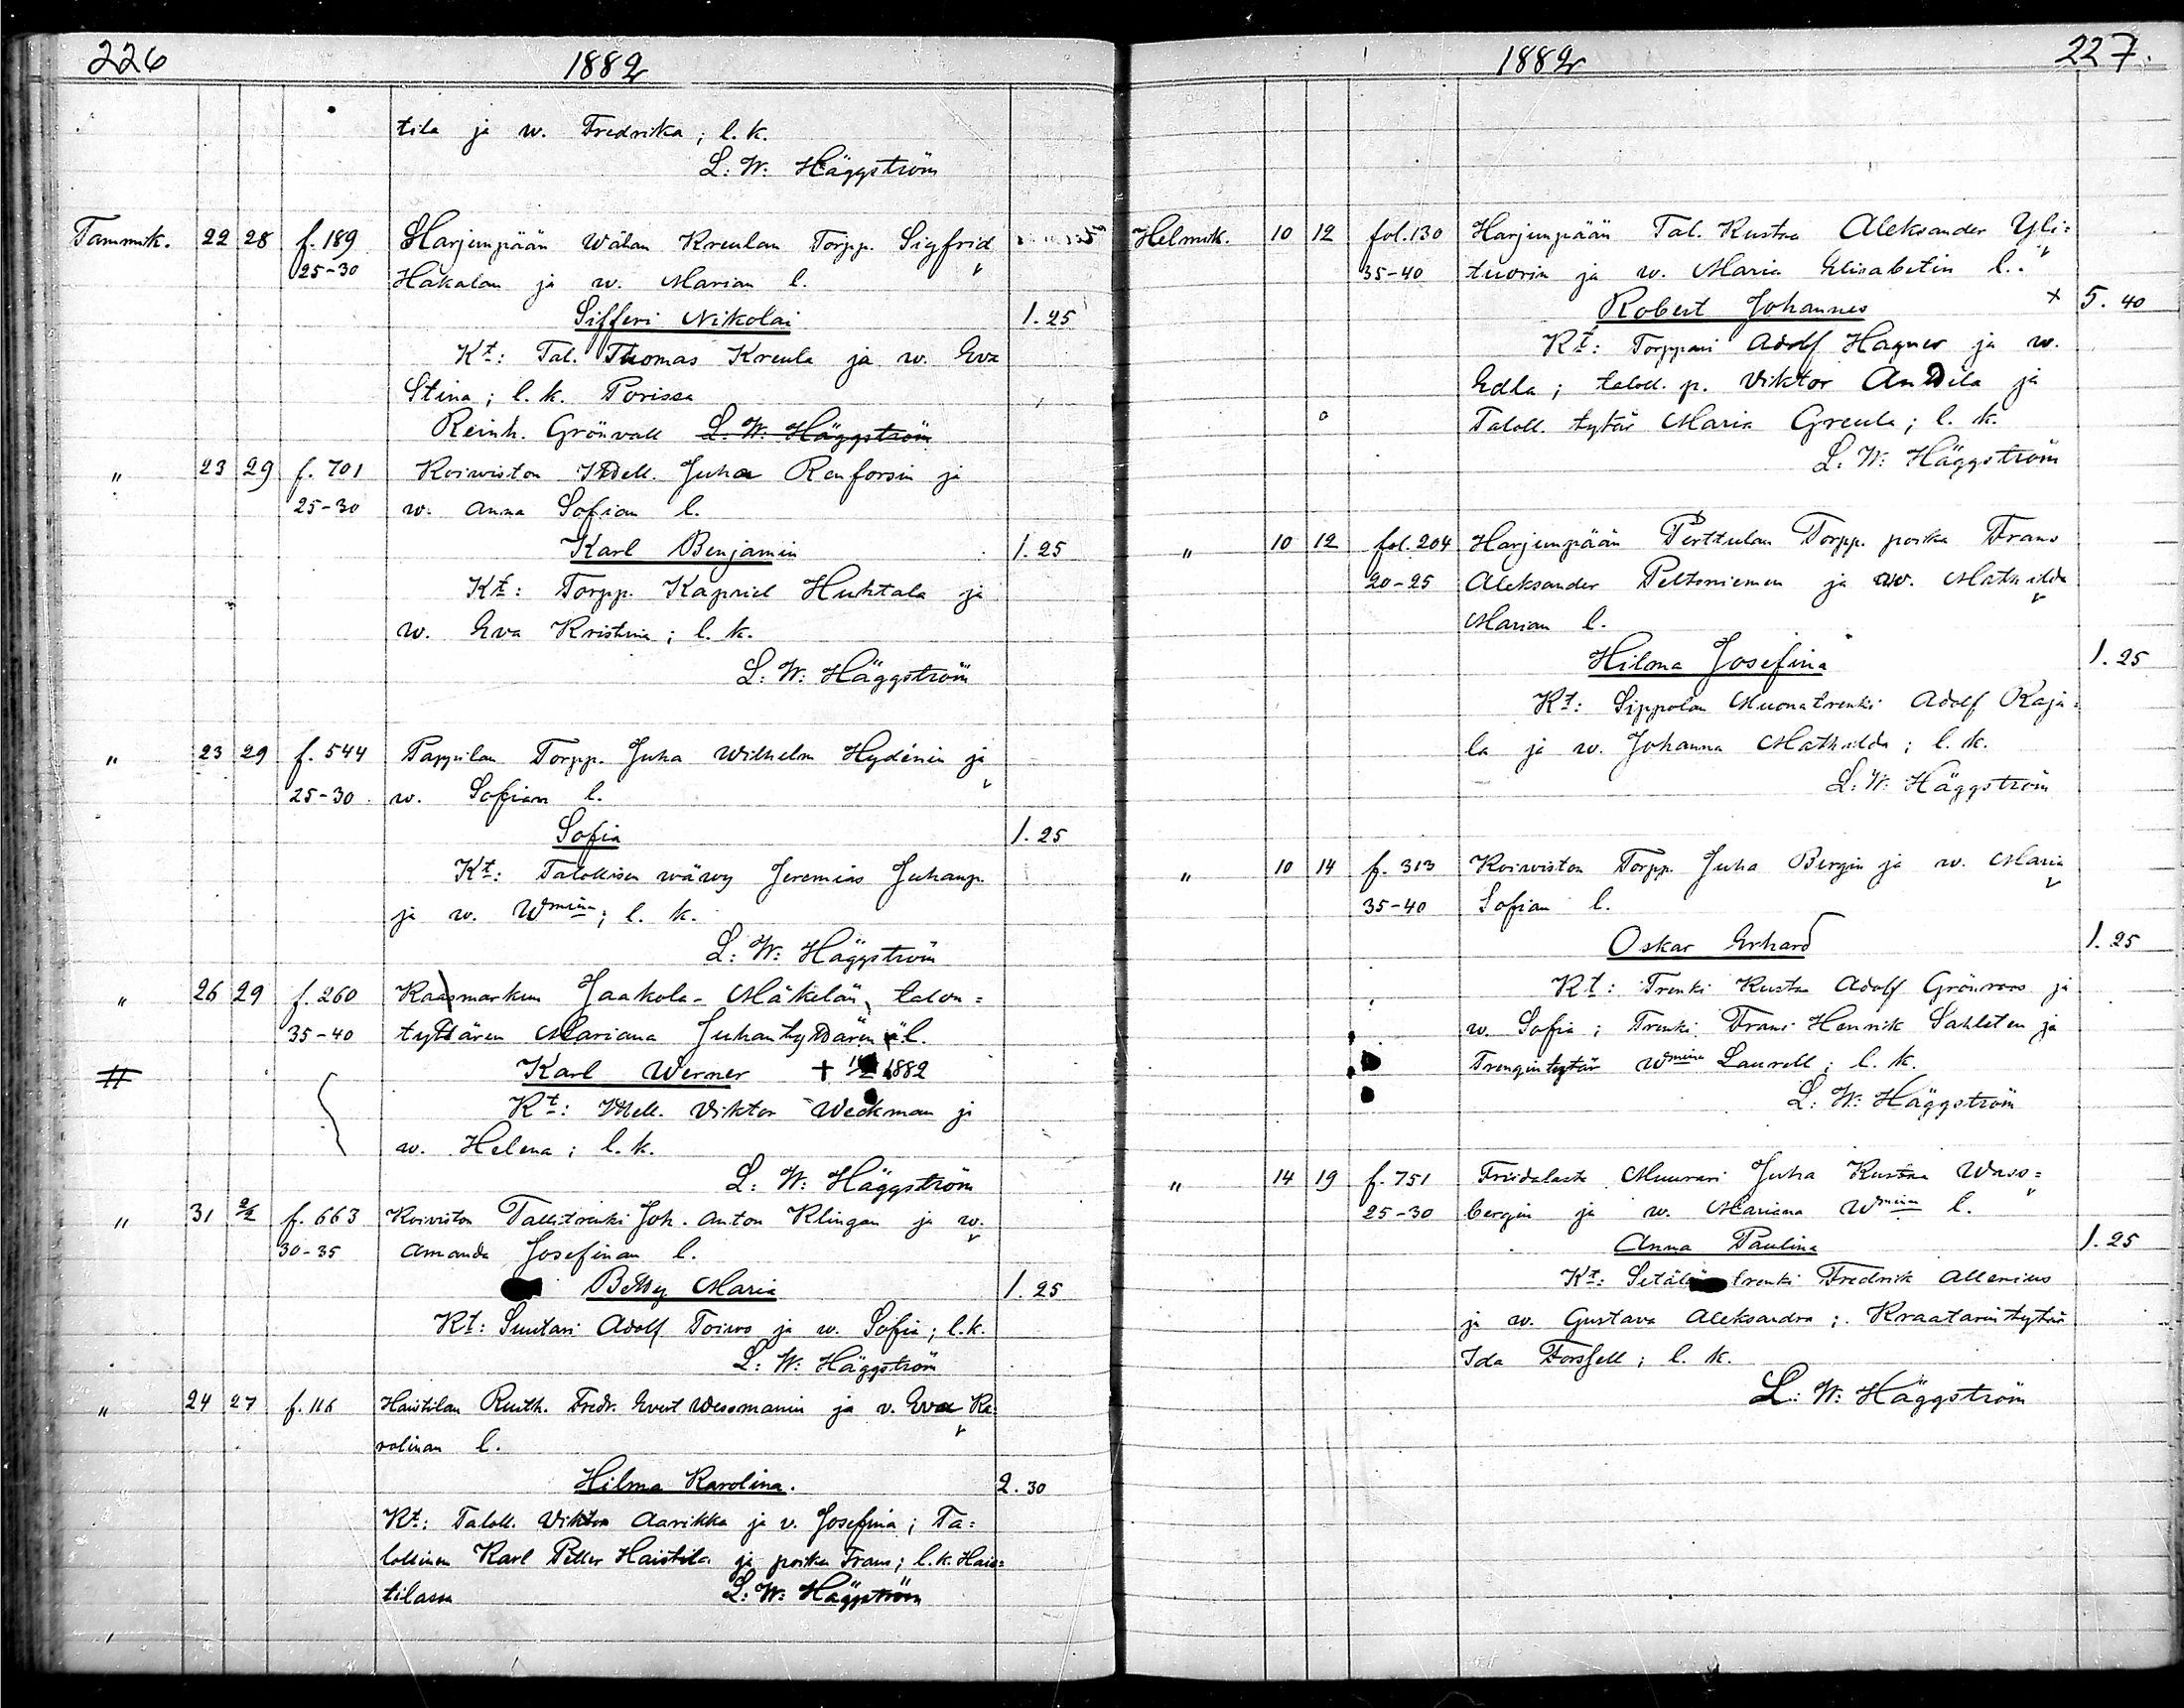 226
1882
tila ja w. Fredrika; l. k.
L: W: Häggström
Tammik. 22 28 f. 189 Harjunpään Wälan Kreulan Torpp. Sigfrid
25-30 Hakalan ja w. Marian l.
Sifferi Nikolai 1. 25
Kt: Tal. Thomas Kreula ja w. Eva
Stina; l. k. Porissa
Reinh. Grönvall L. W. Häggström
" 23 29 f. 701 Koiwiston Juha Renforsin ja
25-30 w. Anna Sofian l.
Karl Benjamin 1. 25
Kt: Torpp. Kapriel Huhtala ja
w. Eva Kristina; l. k.
L: W: Häggström
" 23 29 f. 544 Pappilan Torpp. Juha Wilhelm Hydénin ja
25-30 w. Sofian l.
Sofia 1. 25
Kt: Talollisen wäwy Jeremias Juhanp.
ja w. Wmina; l. k.
L: W: Häggström
" 26 29 f. 260 Kaasmarkun Jaakola-Mäkelän talon=
35-40 tyttären Mariana Juhantyttären äl.
Karl Werner + 1882
Kt: Viktor Weckman ja
w. Helena; l. k.
L: W: Häggström
" 31 2/2 f. 663 Koiviston Tallitrenki Joh. Anton Klingan ja w.
30-35 Amanda Josefinan l.
Betty Maria 1. 25
Kt: Suutari Adolf Toivo ja w. Sofia; l. k.
L: W: Häggström
" 24 27 f. 116 Haistilan Ruuth. Fredr. Evert Wessmanin ja v. Eva Ka
rolinan l.
Hilma Karolina. 2. 30
Kt: Taloll. Viktor Aarikka ja v. Josefina; Ta=
lollinen Karl Petter Haistila ja poika Frans; l. k. Hais=
tilassa L: W: Häggström
1882
227.
Helmik. 10 12 fol. 130 Harjunpään Tal. Kustaa Aleksander Yli=
35-40 tuorin ja w. Maria Elisabetin l.
Robert Johannes x 5. 40
Kt: Torppari Adolf Hagner ja w.
Edla; taloll. p. Viktor Anttila ja
Taloll. tytär Maria Greula; l. k.
L: W: Häggström
" 10 12 fol. 204 Harjunpään Perttulan Torpp. poika Frans
20-25 Aleksander Peltoniemen ja w. Mathilda
Marian l.
Hilma Josefina 1. 25
Kt: Sippolan Muonatrenki Adolf Raja=
la ja w. Johanna Mathilda; l. k.
L: W: Häggström
" 10 14 f. 313 Koiwiston Torpp. Juha Bergin ja w. Maria
35-40 Sofian l.
Oskar Erhard 1. 25
Kt: Trenki Kustaa Adolf Grönroos ja
w. Sofia; Trenki Frans Henrik Sahlsten ja
Trengintytär Wmina Laurell; l. k.
L: W: Häggström
" 14 19 f. 751 Friidalasta Muurari Juha Kustaa Wass=
25-30 bergin ja w. Mariana Wmina l.
Anna Paulina 1. 25
Kt: Setälän trenki Fredrik Allenius
ja w. Gustava Aleksandra; Kraatarintytär
Ida Forssell; l. k.
L: W: Häggström